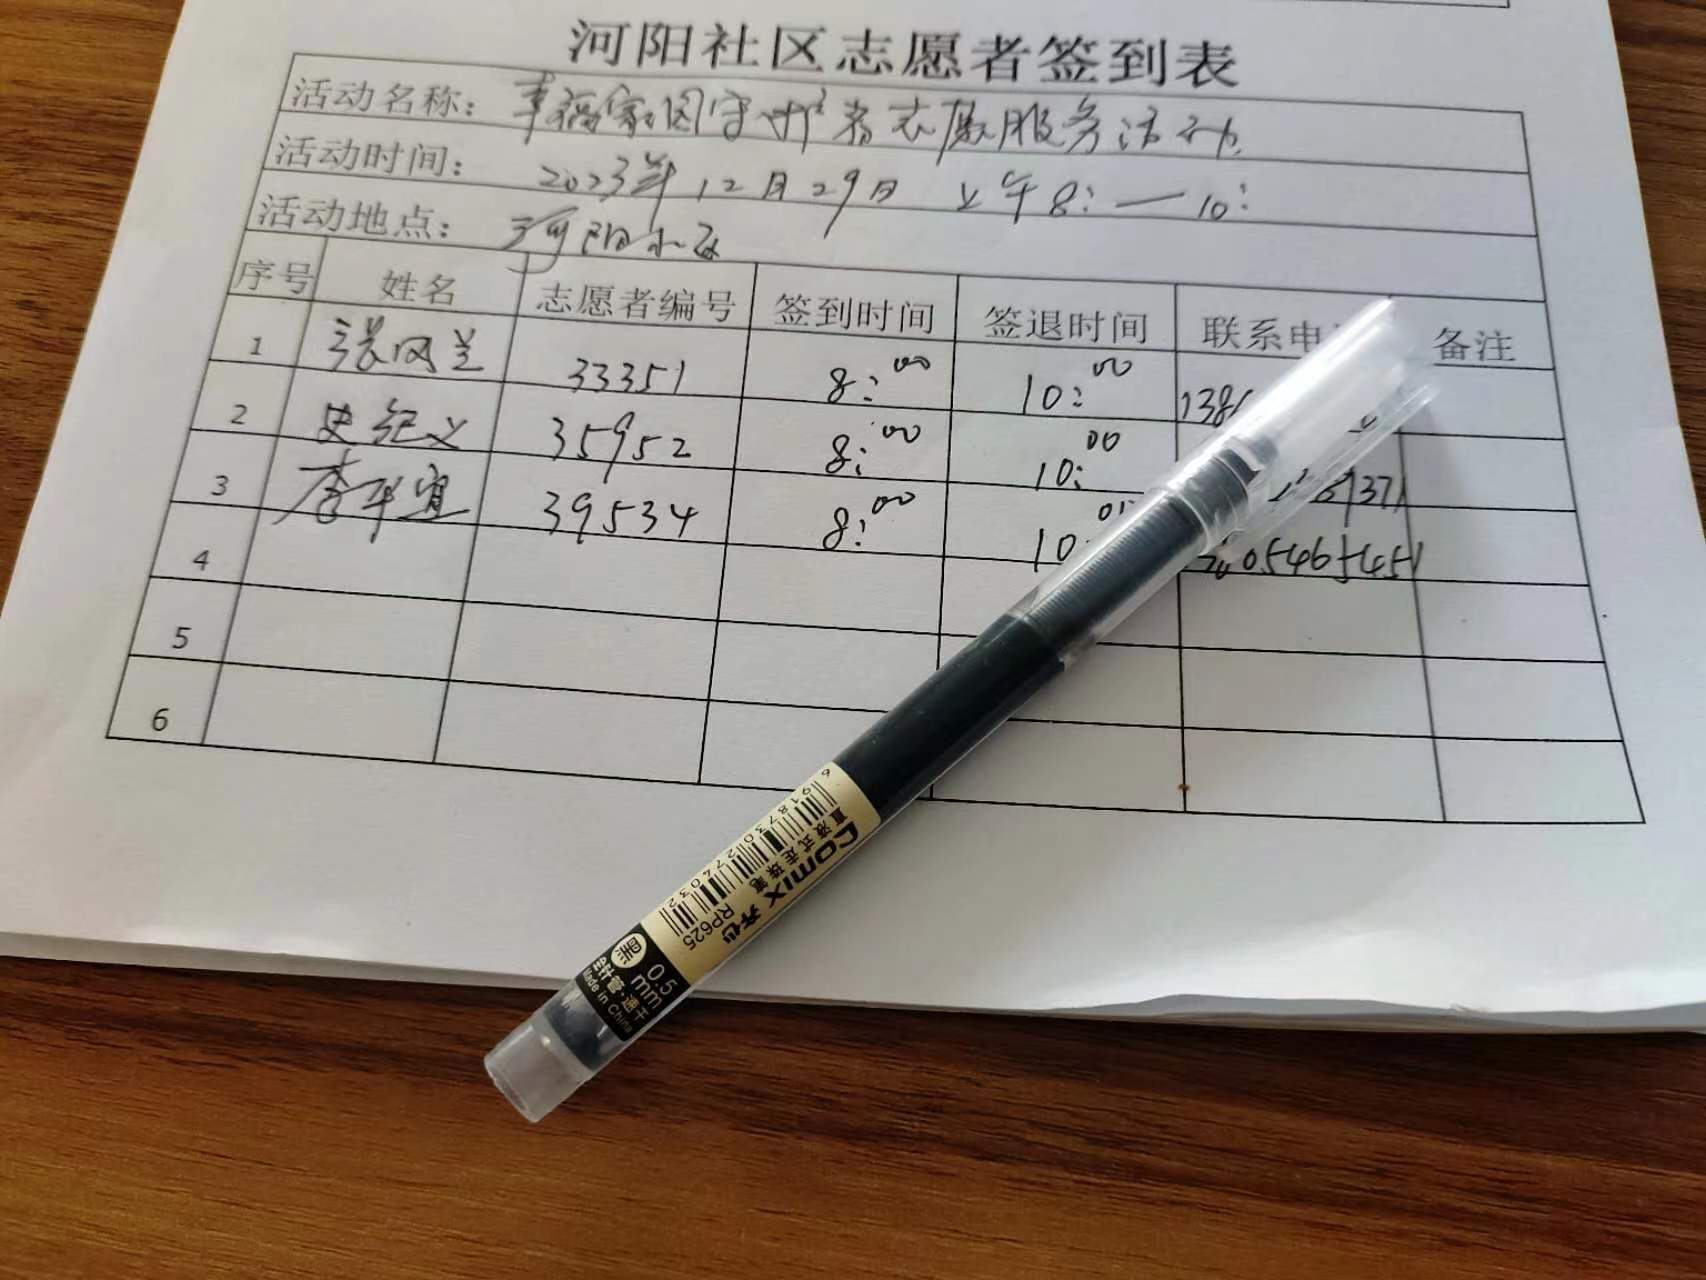 河阳社区志愿者签到表
活动名称：幸福家园守护者志愿服务活动
活动时间：2023年12月29日 上午8：—10：
活动地点：河阳小区
序号 姓名 志愿者编号 签到时间 签退时间 联系电 备注
1 张凤兰 33351 8:00 10:00 138
2 史纪义 35952 8:00 10:00 9371
3 李平宜 39534 8:00 10: 05465451
4
5
6
6 918730 274032
comix 齐心
直液式走珠笔
RP625
黑 0.5mm
全针管·速干
Made in China